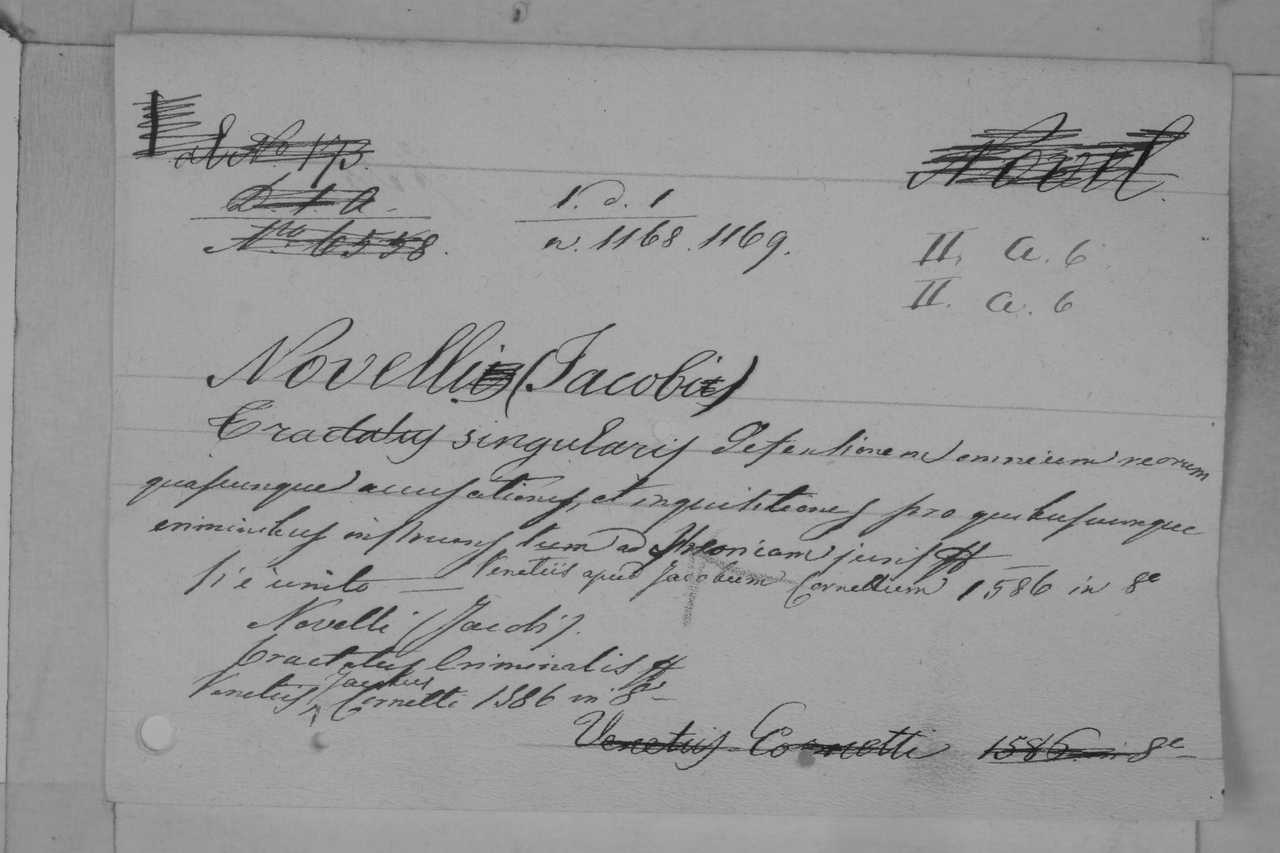 N.o 173.
D. 1. A.
Nro 6558.
1. d. 1
n. 1168. 1169.
Novell.
II. a. 6
II. a. 6
Novelli (Jacobi)
Tractatus singularis defensionem omnium reorum
quascunque accusationes, et inquisitiones pro quibuscunque
criminibus instruens tum ad theoricam juris
Si è unito — Venetiis apud Jacobum Cornettum 1586 in 8o
Novelli (Jacobi).
Tractatus Criminalis
Venetiis, Jacobus Cornetti 1586 in 8o
Venetiis Cornetti 1586 in 8o